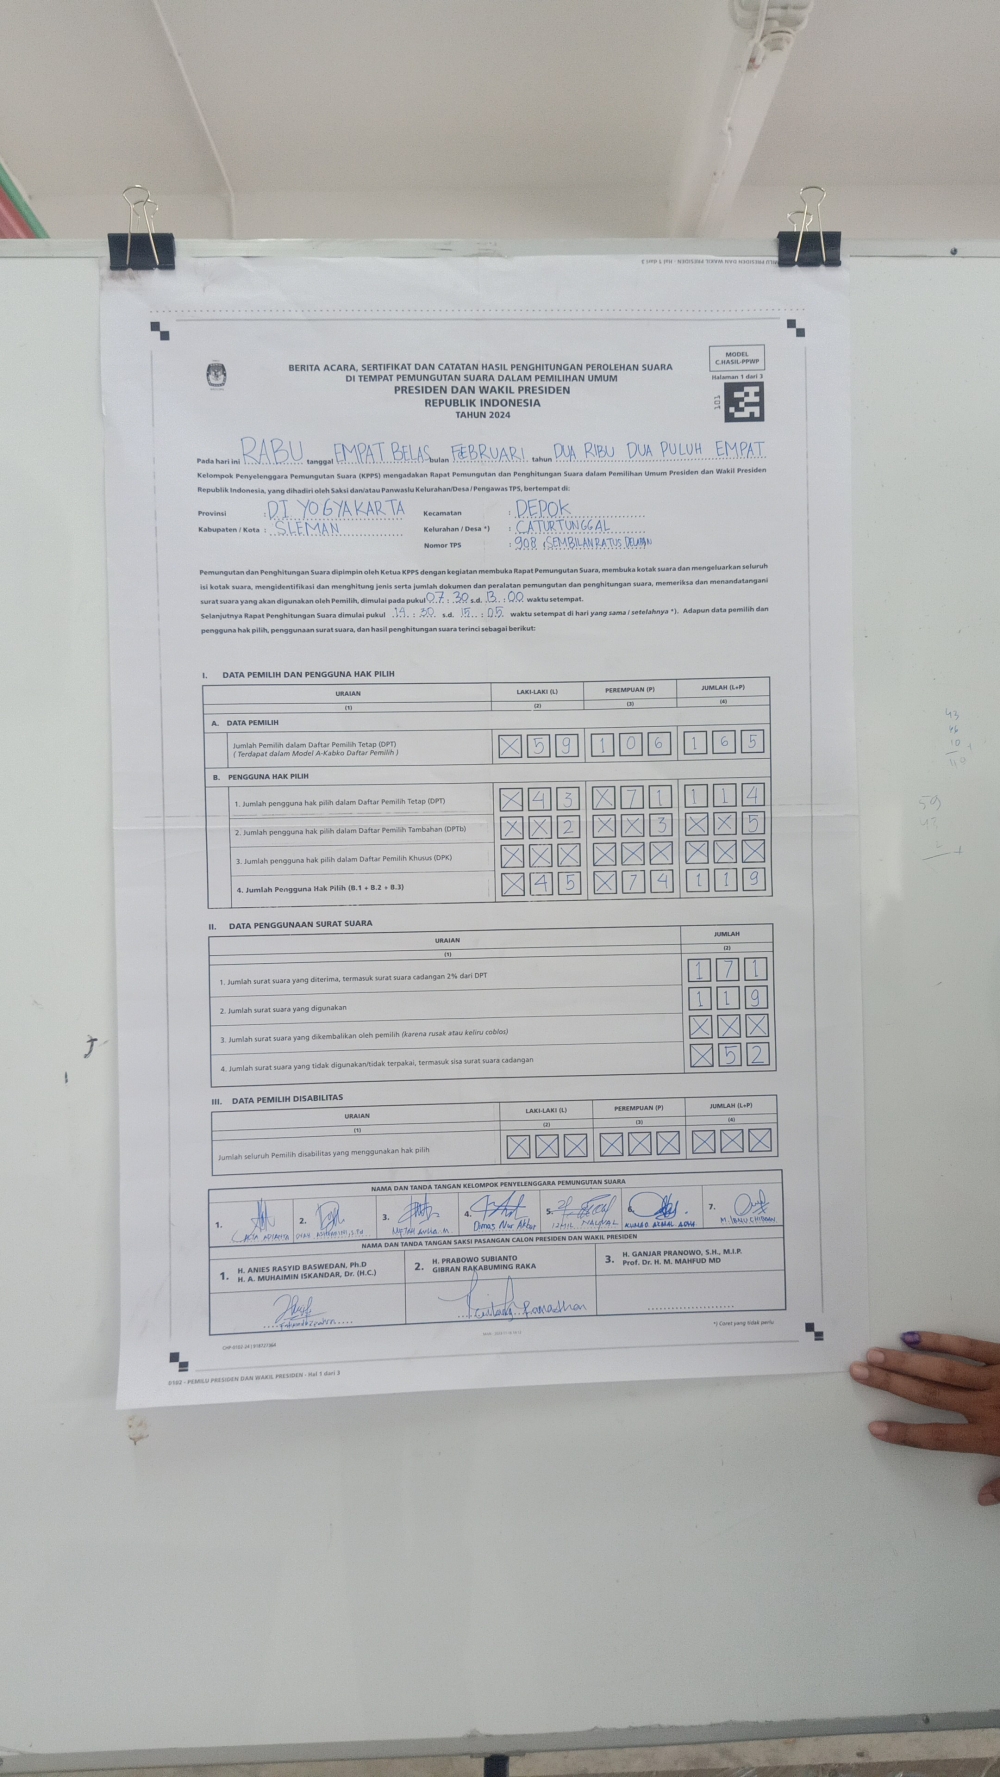 MODEL
C.HASIL-PPWP
Halaman 1 dari 3
101
BERITA ACARA, SERTIFIKAT DAN CATATAN HASIL PENGHITUNGAN PEROLEHAN SUARA
DI TEMPAT PEMUNGUTAN SUARA DALAM PEMILIHAN UMUM
PRESIDEN DAN WAKIL PRESIDEN
REPUBLIK INDONESIA
TAHUN 2024
Pada hari ini RABU tanggal EMPAT BELAS bulan FEBRUARI tahun DUA RIBU DUA PULUH EMPAT
Kelompok Penyelenggara Pemungutan Suara (KPPS) mengadakan Rapat Pemungutan dan Penghitungan Suara dalam Pemilihan Umum Presiden dan Wakil Presiden
Republik Indonesia, yang dihadiri oleh Saksi dan/atau Panwaslu Kelurahan/Desa / Pengawas TPS, bertempat di:
Provinsi : DI YOGYAKARTA Kecamatan : DEPOK
Kabupaten / Kota : SLEMAN Kelurahan / Desa *) : CATURTUNGGAL
Nomor TPS : 908 (SEMBILAN RATUS DELAPAN
Pemungutan dan Penghitungan Suara dipimpin oleh Ketua KPPS dengan kegiatan membuka Rapat Pemungutan Suara, membuka kotak suara dan mengeluarkan seluruh
isi kotak suara, mengidentifikasi dan menghitung jenis serta jumlah dokumen dan peralatan pemungutan dan penghitungan suara, memeriksa dan menandatangani
surat suara yang akan digunakan oleh Pemilih, dimulai pada pukul 07 : 30 s.d. 13 : 00 waktu setempat.
Selanjutnya Rapat Penghitungan Suara dimulai pukul 14 : 30 s.d. 15 : 05 waktu setempat di hari yang sama / setelahnya *). Adapun data pemilih dan
pengguna hak pilih, penggunaan surat suara, dan hasil penghitungan suara terinci sebagai berikut:
I. DATA PEMILIH DAN PENGGUNA HAK PILIH
URAIAN LAKI-LAKI (L) PEREMPUAN (P) JUMLAH (L+P)
(1) (2) (3) (4)
A. DATA PEMILIH
Jumlah Pemilih dalam Daftar Pemilih Tetap (DPT) X 5 9 1 0 6 1 6 5
( Terdapat dalam Model A-Kabko Daftar Pemilih )
B. PENGGUNA HAK PILIH
1. Jumlah pengguna hak pilih dalam Daftar Pemilih Tetap (DPT) X 4 3 X 7 1 1 1 4
2. Jumlah pengguna hak pilih dalam Daftar Pemilih Tambahan (DPTb) X X 2 X X 3 X X 5
3. Jumlah pengguna hak pilih dalam Daftar Pemilih Khusus (DPK) X X X X X X X X X
4. Jumlah Pengguna Hak Pilih (B.1 + B.2 + B.3) X 4 5 X 7 4 1 1 9
II. DATA PENGGUNAAN SURAT SUARA
URAIAN JUMLAH
(1) (2)
1. Jumlah surat suara yang diterima, termasuk surat suara cadangan 2% dari DPT 1 7 1
2. Jumlah surat suara yang digunakan 1 1 9
3. Jumlah surat suara yang dikembalikan oleh pemilih (karena rusak atau keliru coblos) X X X
4. Jumlah surat suara yang tidak digunakan/tidak terpakai, termasuk sisa surat suara cadangan X 5 2
III. DATA PEMILIH DISABILITAS
URAIAN LAKI-LAKI (L) PEREMPUAN (P) JUMLAH (L+P)
(1) (2) (3) (4)
Jumlah seluruh Pemilih disabilitas yang menggunakan hak pilih X X X X X X X X X
NAMA DAN TANDA TANGAN KELOMPOK PENYELENGGARA PEMUNGUTAN SUARA
1. 2. 3. 4. 5. 6. 7.
Dimas Nur Akbar
NAMA DAN TANDA TANGAN SAKSI PASANGAN CALON PRESIDEN DAN WAKIL PRESIDEN
1. H. ANIES RASYID BASWEDAN, Ph.D
H. A. MUHAIMIN ISKANDAR, Dr. (H.C.)
2. H. PRABOWO SUBIANTO
GIBRAN RAKABUMING RAKA
3. H. GANJAR PRANOWO, S.H., M.I.P.
Prof. Dr. H. M. MAHFUD MD
Ramadhan
*) Coret yang tidak perlu
0162 - PEMILU PRESIDEN DAN WAKIL PRESIDEN - Hal 1 dari 3